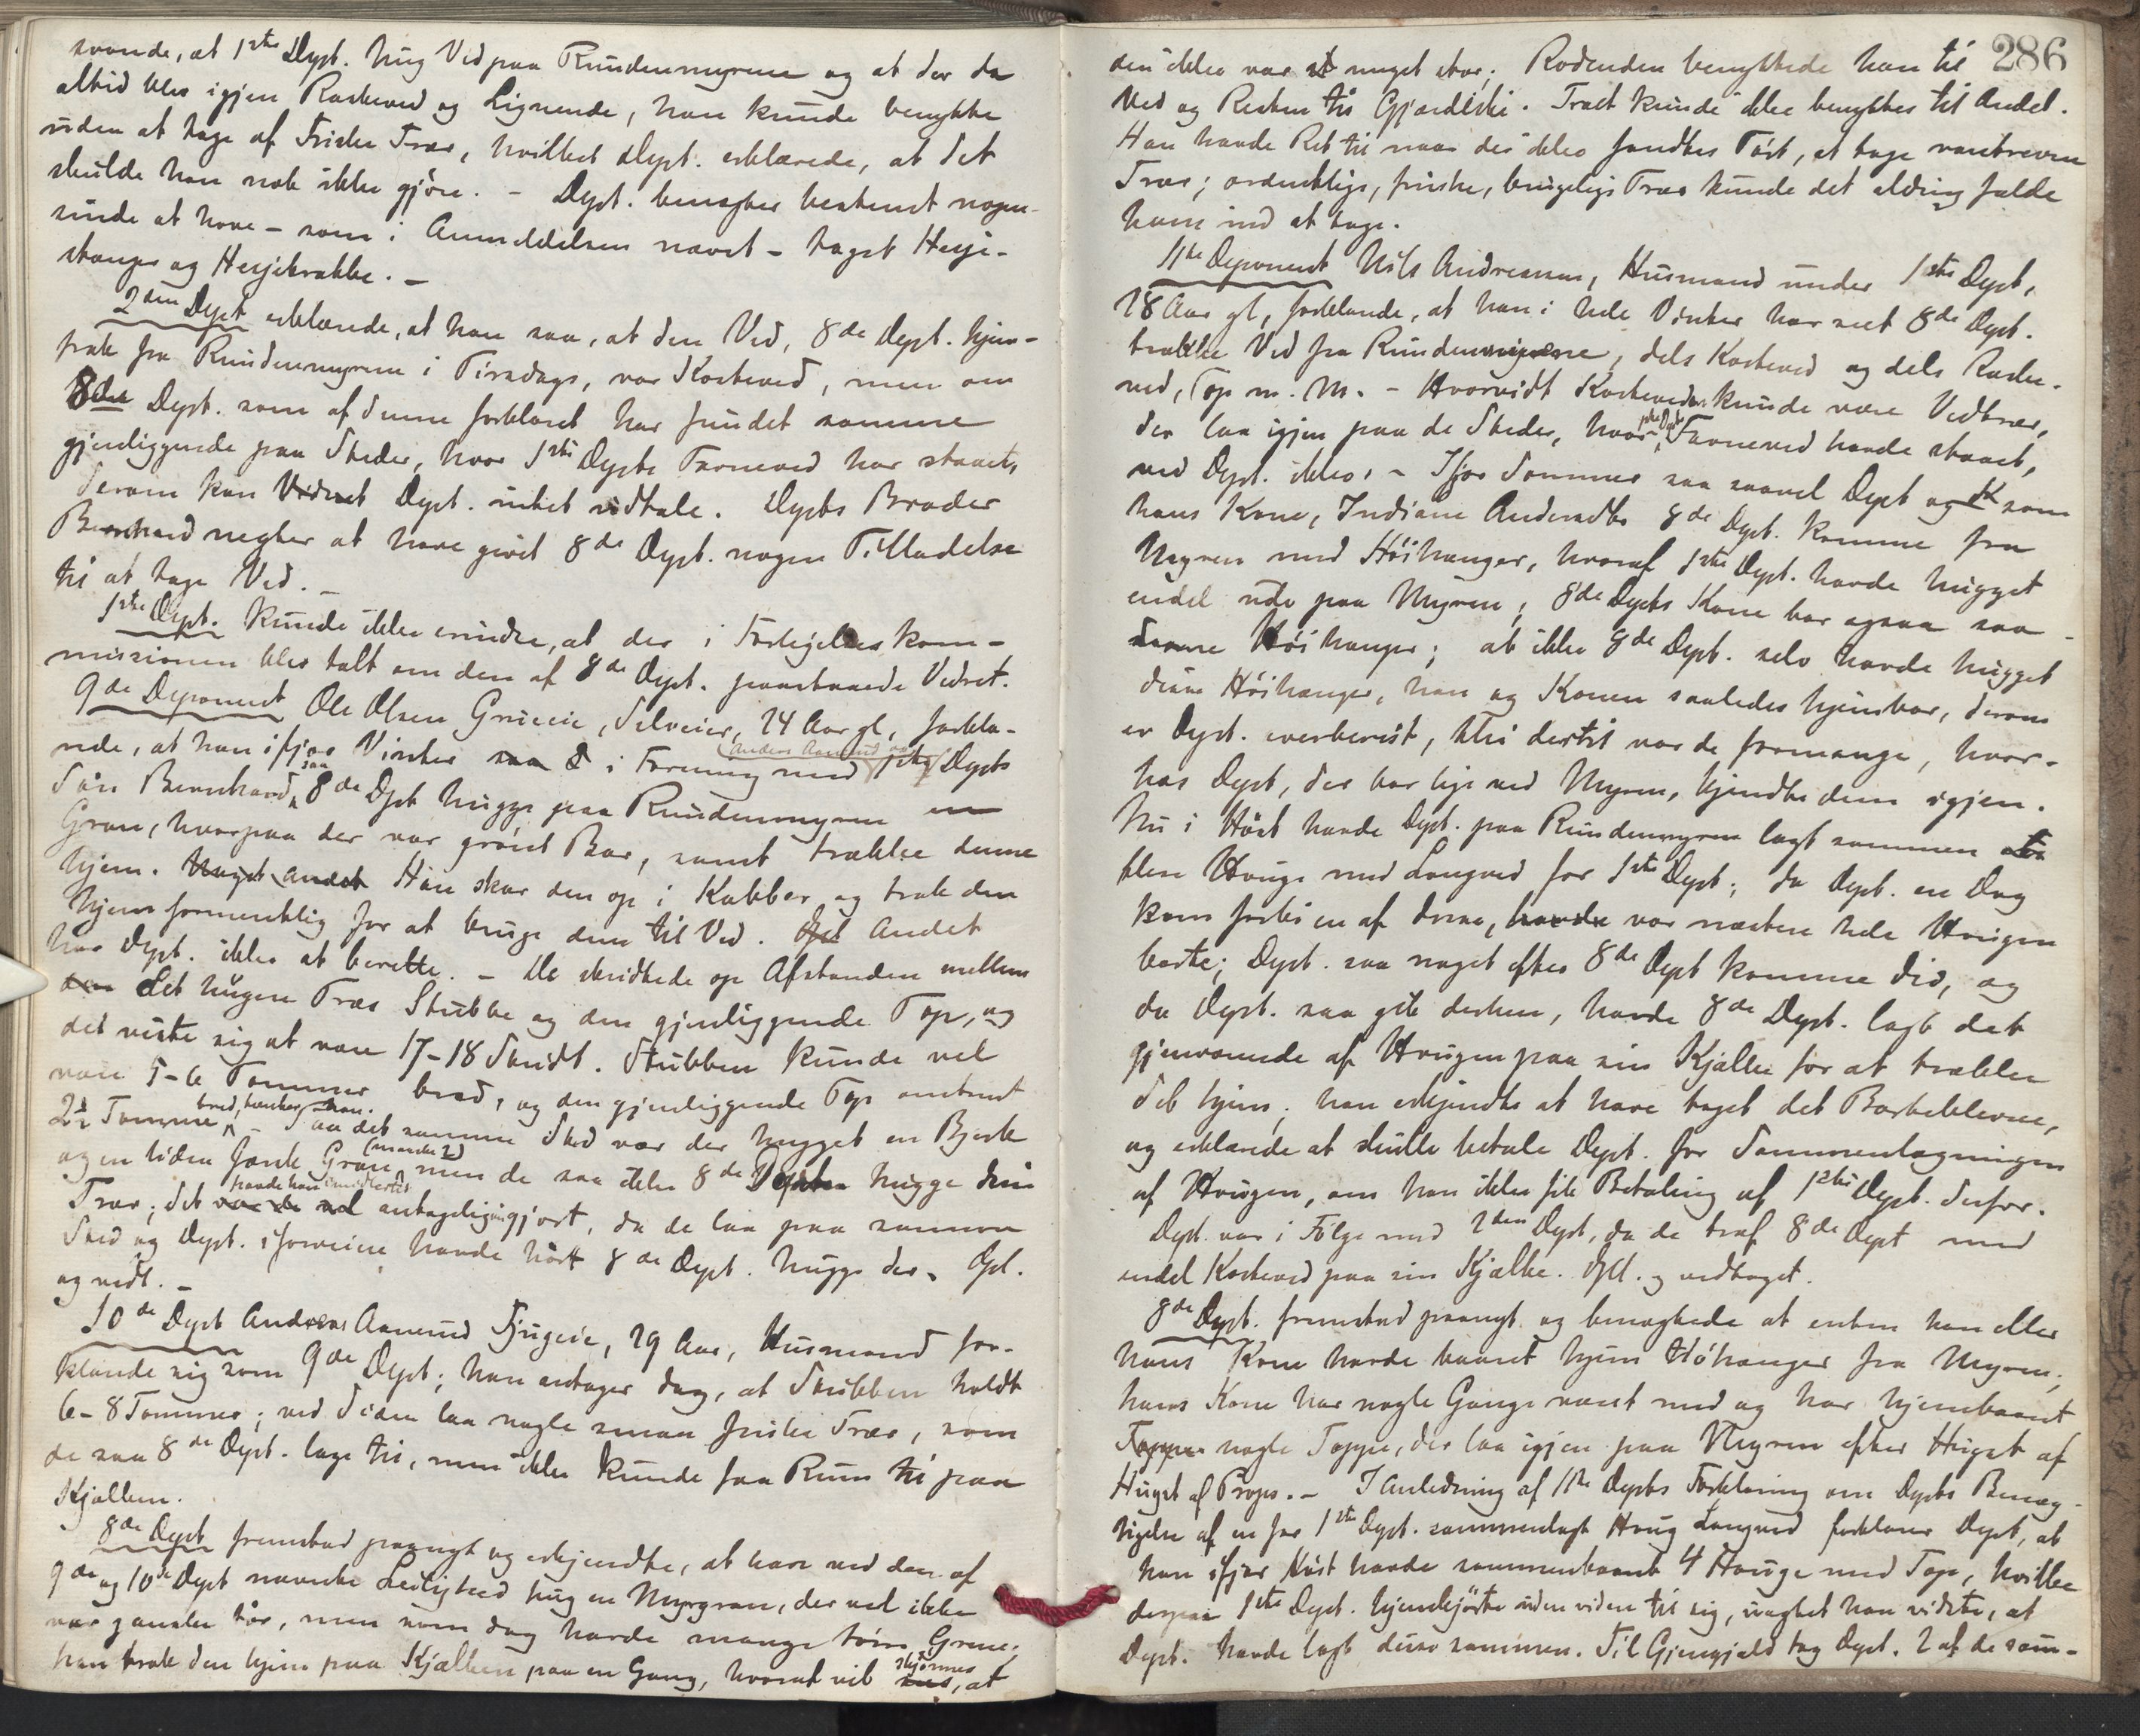 svarede, at 1ste Dept. hug Ved paa Rundenmyrene og at der da
altid blev igjen Raskeved og Lignende, han kunde benytte
uden at tage af Friske Trær, hvilket Dept. erklærede, at det
skulde han nok ikke gjöre. - Dept. benegter bestemt nogen-
sinde at have - som i Anmeldelsen nævnt - taget Hesje-
stænger og Hesjekrakke. -
2den Dept erklærede, at han saa, at den Ved, 8de Dept. hjem-
trak fra Rundenmyrene i Tirsdags, var Kasteved, men om
8de Dept. som af denne forklaret har fundet samme
gjenliggende paa Steder, hvor 1ste Depts Favneved har staaet,
derom kan Vidnet Dept. intet udtale. Depts Broder
Bernhard negter at have givet 8de Dept. nogen Tilladelse
til at tage Ved. -
1ste Dept. kunde ikke erindre, at der i Forligelseskom-
missionen blev talt om den af 8de Dept. paastaaede Vedret.
9de Deponent Ole Olsen Grueie, Selveier, 24 Aar gl, forkla-
rede, at han ifjor Vinter saa i Forening med 1ste Depts
(Anders Aamund og)
Sön Bernhard, saa 8de Dept hugge paa Rundenmyrene en
Gran, hvorpaa der var grönt Bar, samt trække denne
hjem. Noget andet Han skar den op i Kubber og trak den
hjem formentlig for at bruge den til Ved. Opl Andet
har Dept. ikke at berette. - De skridtede op Afstanden mellem
den det hugne Træs Stubbe og den gjenliggende Top, og
det viste sig at være 17-18 Skridt. Stubben kunde vel
være 5-6 Tommer bred, og den gjenliggende Top omtrent
2½ Tomme bred, tænker han. - Paa det samme Sted var der hugget en Bjerk
og en liden Gran (maaske 2) men de saa ikke 8de Dept hugge disse
Trær; det havde han imidlertid antagelig gjort, da de laa paa samme
Sted og Dept. iforveien havde hört 8de Dept. hugge der. Opl.
og vedt. -
10de Dept Andreas Aamund Fjugeie, 29 Aar, Husmand for-
klarede sig som 9de Dept; han antager dog, at Stubben holdt
6-8 Tommer; ved Siden laa nogle smaa friske Trær, som
de saa 8de Dept. lage til, men ikke kunde faa Rum til paa
Kjælken.
8de Dept fremstod paanyt og erkjendte, at have ved den af
9de og 10de Dept nævnte Leilighed hug en Myrgran, der vel ikke
var ganske tör, men som dog havde mange törre Grene;
han trak den hjem paa Kjælken paa en Gang, hvoraf vil skjönnes, at
286
den ikke var meget stor. Rodenden benyttede han til
Ved og Resten til Gjærdeski. Træet kunde ikke benyttes til Andet.
Han havde Ret til naar der ikke fandtes Tört, at tage vantrevne
Trær; ordentlige, friske, brugelige Trær kunde det aldrig falde
ham ind at tage.
11te Deponent Nils Andreassen, Husmand under 1ste Dept,
28 Aar gl, forklarede, at han i hele Vinter har seet 8de Dept.
trække Ved fra Rundenmyrene, dels Kasteved og dels Raske-
ved, Top m. M. - Hvorvidt Kasteveden kunde være Vedtrær,
der laa igjen paa de Steder, hvor 1ste Depts Favneved havde staaet,
ved Dept. ikke. - Ifjor Sommer saa saavel Dept og som
hans Kone, Indiane Andersdtr 8de Dept. komme fra
Myren med Höihænger, hvoraf 1ste Dept. havde hugget
endel ude paa Myren; 8de Depts Kone bar ogsaa saa-
danne Höihænger; at ikke 8de Dept. selv havde hugget
disse Höihænger, han og Konen saaledes hjembar, derom
er Dept. overbevist, thi dertil var de formange, hvor-
hos Dept, der bor lige ved Myren, kjendte dem igjen.
Nu i Höst havde Dept. paa Rundenmyrene lagt sammen
flere Hauge med Langved for 1ste Dept; da Dept. en Dag
kom forbi en af disse, havde var næsten hele Haugen
borte; Dept. saa noget efter 8de Dept komme did, og
da Dept. saa gik derhen, havde 8de Dept. lagt det
gjenværende af Haugen paa sin Kjælke for at trække
det hjem; han erkjendte at have taget det Bortblevne,
og erklærede at skulle betale Dept. for Sammenlægningen
af Haugen, om han ikke fik Betaling af 1ste Dept. derfor.
Dept. var i Fölge med 2den Dept, da de traf 8de Dept med
endel Kasteved paa sin Kjælke. Opl. og vedtaget.
8de Dept. fremstod paanyt og benegtede at enten han eller
hans Kone havde baaret hjem Höhænger fra Myren;
hans Kone har nogle Gange været med og har hjembaaret
Toppe nogle Toppe, der laa igjen paa Myren efter Huget af
Huget af Props. - I Anledning af 11te Depts Forklaring om Depts Benæg-
tigelse af en for 1ste Dept. sammenlagt Haug Langved forklarer Dept, at
han ifjor Höst havde sammenbaaret 4 Hauge med Top, hvilke
derpaa 1ste Dept. hjemkjörte uden videre til sig, uagtet han vidste, at
Dept. havde lagt disse sammen. Til Gjengjæld tog Dept. 2 af de sam-